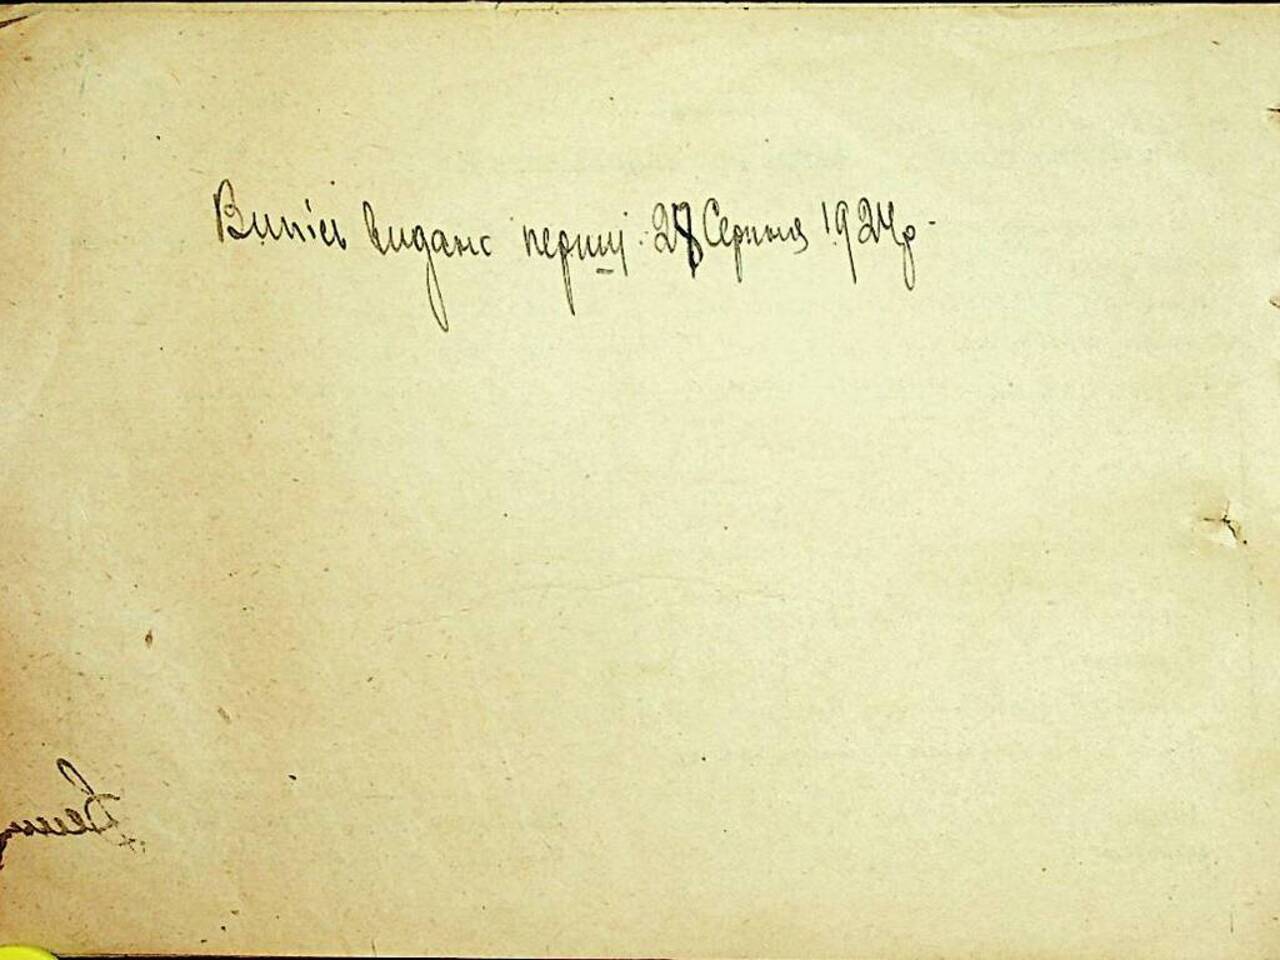 Випісь видано перший 28 Серпня 1924 р.